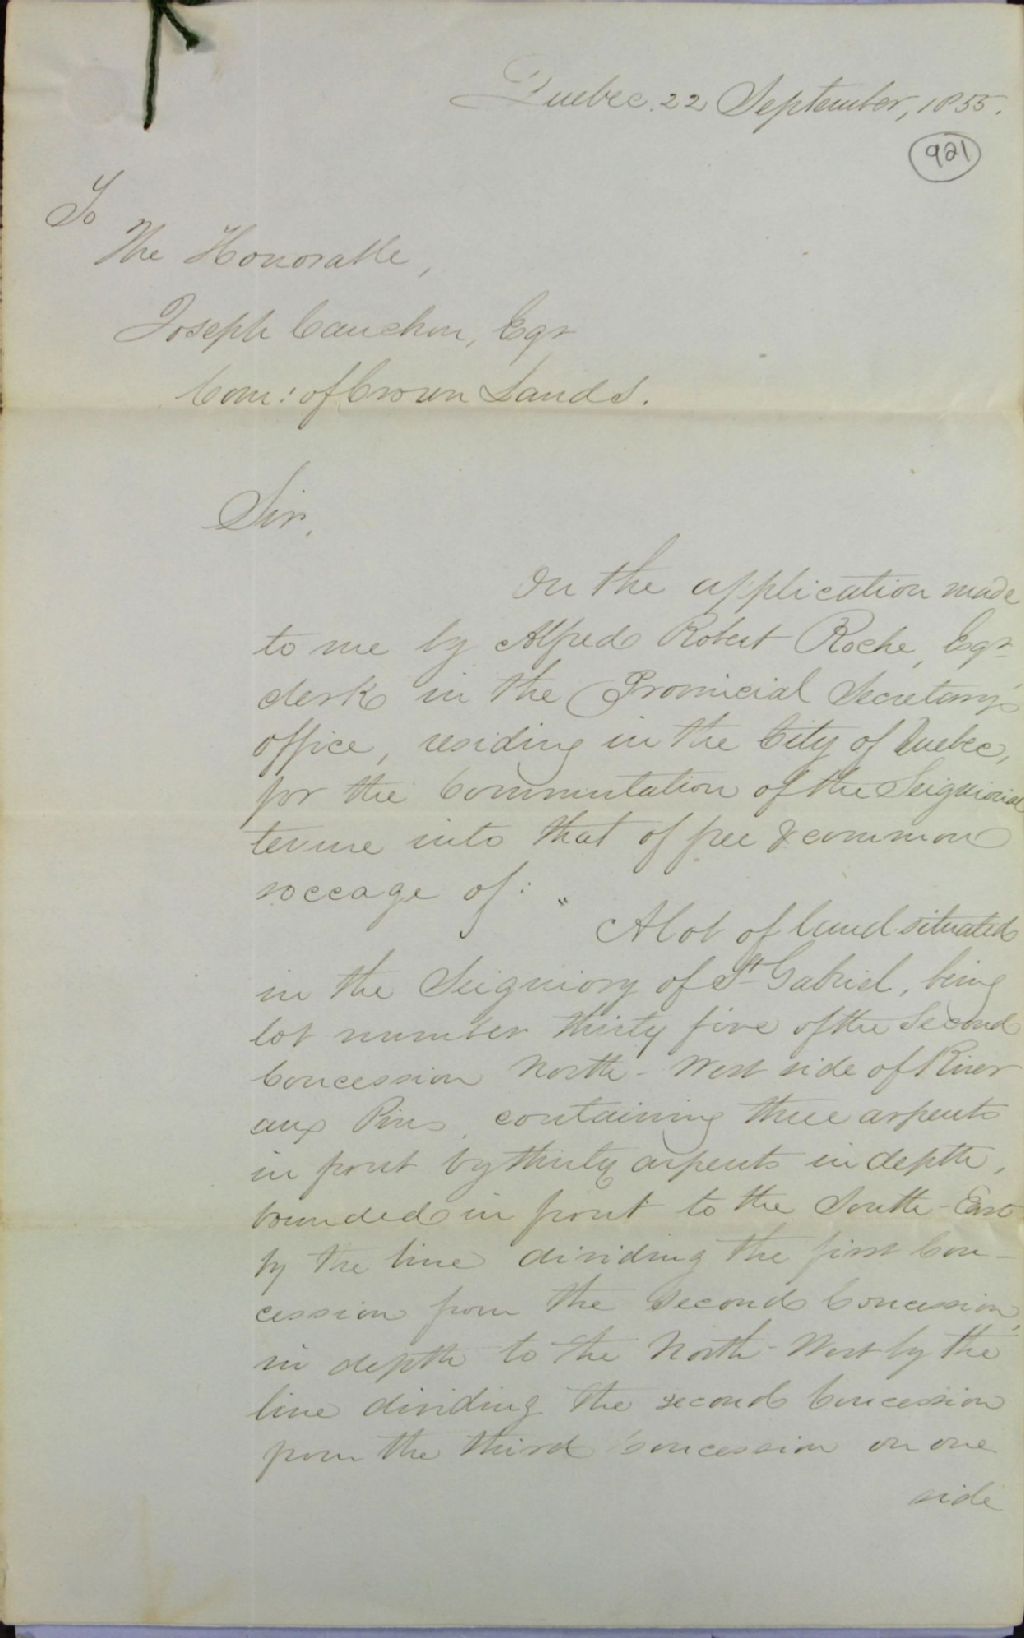 Quebec. 22 September, 1855.
921
To
The Honorable,
Joseph Cauchon, Esqr
Com: of Crown Lands.
Sir,
On the application made
to me by Alfred Robert Roche, Esqr
clerk in the Provincial Secretary's
office, residing in the City of Quebec,
for the Commutation of the Seigniorial
tenure into that of free & common
soccage of: "
A lot of land situated
in the Seigniory of St Gabriel, being
lot number thirty five of the Second
Concession North-West side of River
aux Pins, containing three arpents
in front by thirty arpents in depth,
bounded in front to the South-East
by the line dividing the first Con-
cession from the Second Concession,
in depth to the North-West by the
line dividing the second Concession
from the third concession on one
side